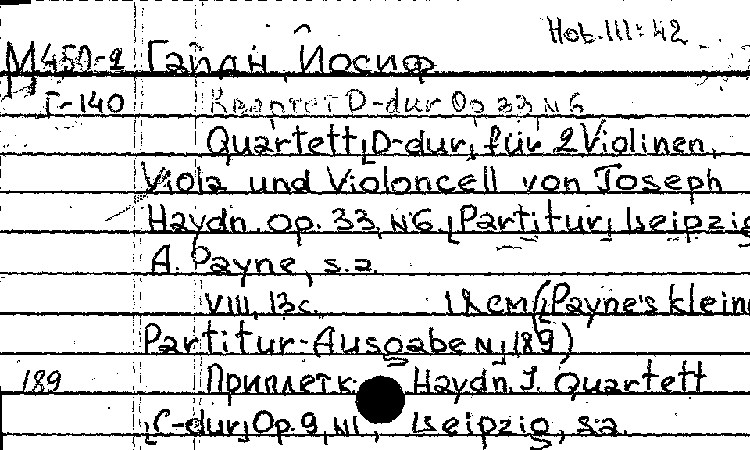 Hob.III:42
М450-2 Гайдн, Иосиф
Г-140 Квартет D-dur Op 33, N6
Quartett, [D-dur] für 2 Violinen,
Viola und Violoncell von Joseph
Haydn. Op. 33, N6. [Partitur] Leipzig
A. Payne, s.a.
VIII, 13c. 18см (Payne's klein
Partitur-Ausgabe N 189)
189 Приплетк: Haydn. J. Quartett
[C-dur] Op. 9, N1, Leipzig, s.a.